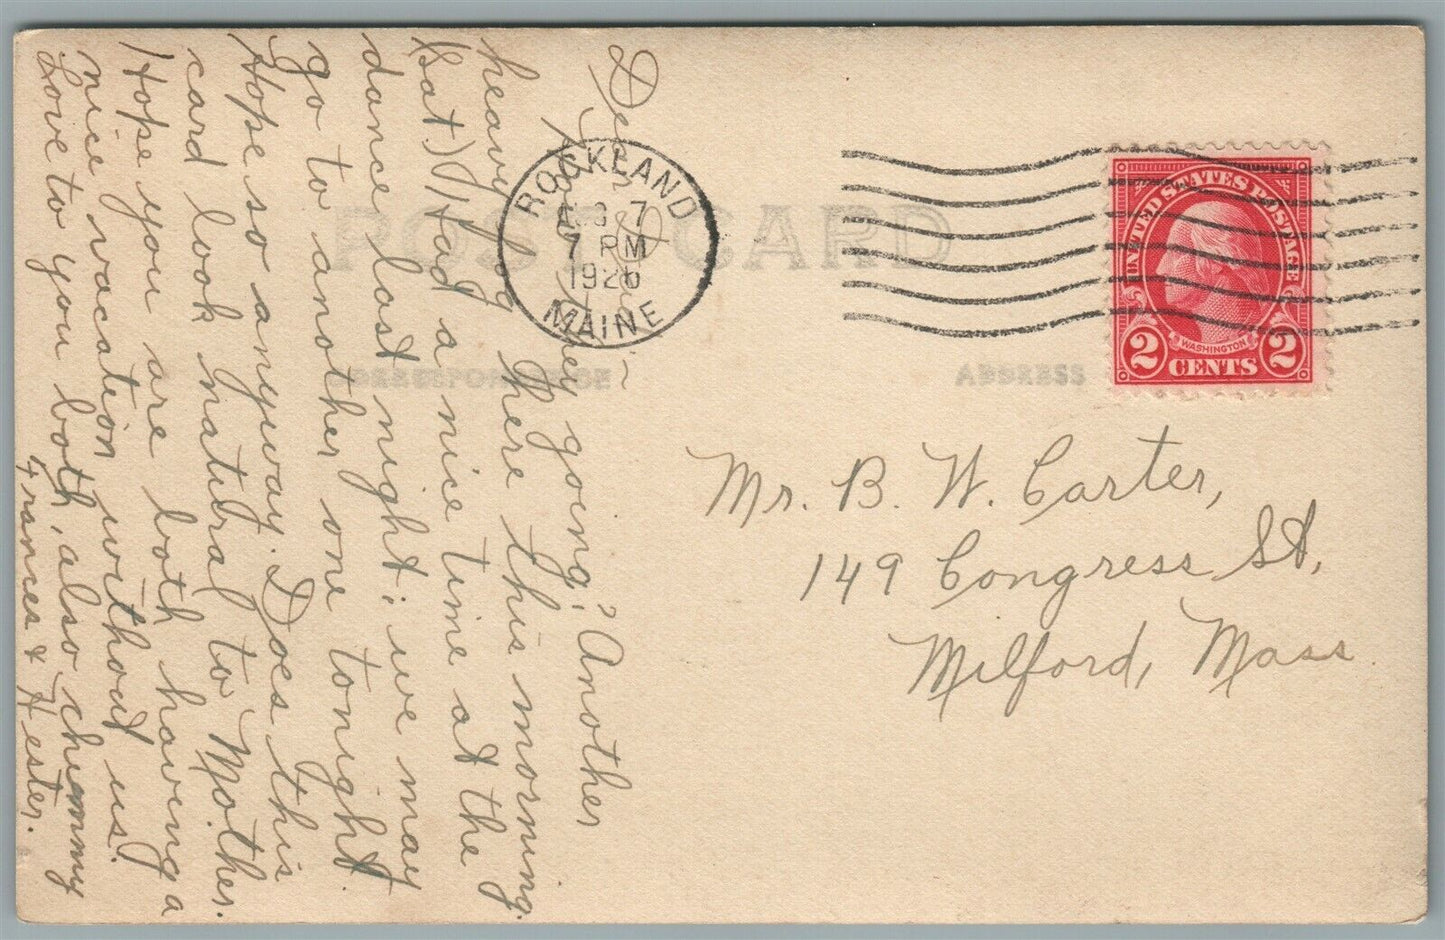 POST CARD
CORRESPONDENCE
ADDRESS
ROCKLAND
AUG 7
7 PM
1926
MAINE
UNITED STATES POSTAGE
WASHINGTON
2 CENTS 2
Mr. B. W. Carter,
149 Congress St,
Milford, Mass.
Dear
going? Another
heavy fog here this morning.
(Sat.) Had a nice time at the
dance last night; we may
go to another one tonight
Hope so anyway. Does this
card look natural to Mother.
Hope you are both having a
nice vacation without us.
Love to you both, also chummy
Frances & Hester.